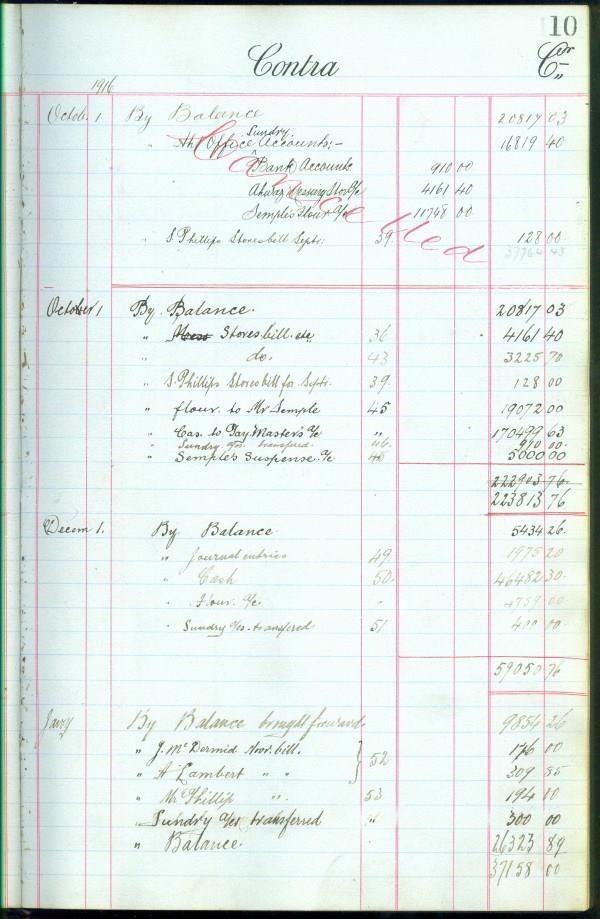 10
Contra
Cr
1916
Octob. 1 By Balance 20817 03
" Office Sundry Accounts:- 16819 40
Bank Accounts 910 00
Ahwaz Stores a/c 4161 40
Semple's Flour a/c 11748 00
Cancelled
" S. Phillips Stores bill Septr: 39. 128 00.
37764 43
October 1 By Balance. 20817 03
" Mess Stores bill. etc. 36 4161 40
" do. 43 3225 70
" S. Phillips Stores bill for Septr. 39. 128 00
" flour. to Mr Semple 45 19072 00
" Cas. to Pay Master's a/c " 170499 63
" Sundry a/cs. transfered. 46. 910 00.
" Semple's Suspense. a/c 46 5000 00
222903 76.
223813 76
Decem 1. By Balance 5434 26.
" Journal entries 49. 1975 20
" Cash 50. 46482 30.
" Flour. a/c. " 4759 00
" Sundry a/cs. transfered 51 400 00
59050 76
Jany By Balance brought forward 9854 26
" J. McDermid Novr. bill. 52 176 00
" A Lambert " " 309 85
" Mr Phillip " 53 194 00
" Sundry a/cs transferred " 300 00
" Balance. 26323 89
37158 00